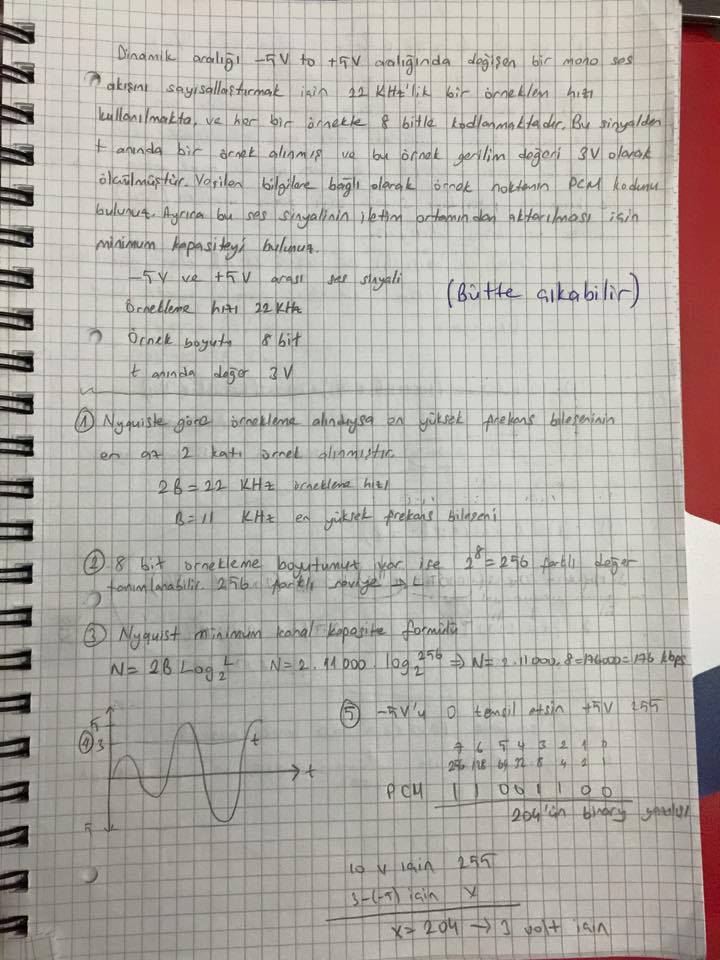 Dinamik aralığı -5V to +5V aralığında değişen bir mono ses
akışını sayısallaştırmak için 22 KHz'lik bir örneklen hızı
kullanılmakta, ve her bir örnekte 8 bitle kodlanmaktadır. Bu sinyalden
t anında bir örnek alınmış ve bu örnek gerilim değeri 3V olarak
ölçülmüştür. Verilen bilgilere bağlı olarak örnek noktanın PCM kodunu
bulunuz. Ayrıca bu ses sinyalinin iletim ortamından aktarılması için
minimum kapasiteyi bulunuz.
-5V ve +5V arası ses sinyali
(Bütte çıkabilir)
Örnekleme hızı 22 KHz
Örnek boyutu 8 bit
t anında değer 3V
① Nyquiste göre örnekleme alındıysa en yüksek frekans bileşeninin
en az 2 katı örnek alınmıştır.
2B = 22 KHz örnekleme hızı
B = 11 KHz en yüksek frekans bileşeni
② 8 bit örnekleme boyutumuz var ise 2^8 = 256 farklı değer
tanımlanabilir. 256 farklı seviye → L
③ Nyquist minimum kanal kapasite formülü
N = 2B Log2 L N = 2.11000.log2 256 => N = 2.11000.8 = 176000 = 176 kbps
④
5
3
t
t
5
⑤ -5V'u 0 temsil etsin +5V 255
7 6 5 4 3 2 1 0
256 128 64 32 8 4 2 1
PCM 1 1 0 0 1 1 0 0
204'ün binary
10 V için 255
3-(-5) için x
x = 204 → 3 volt için